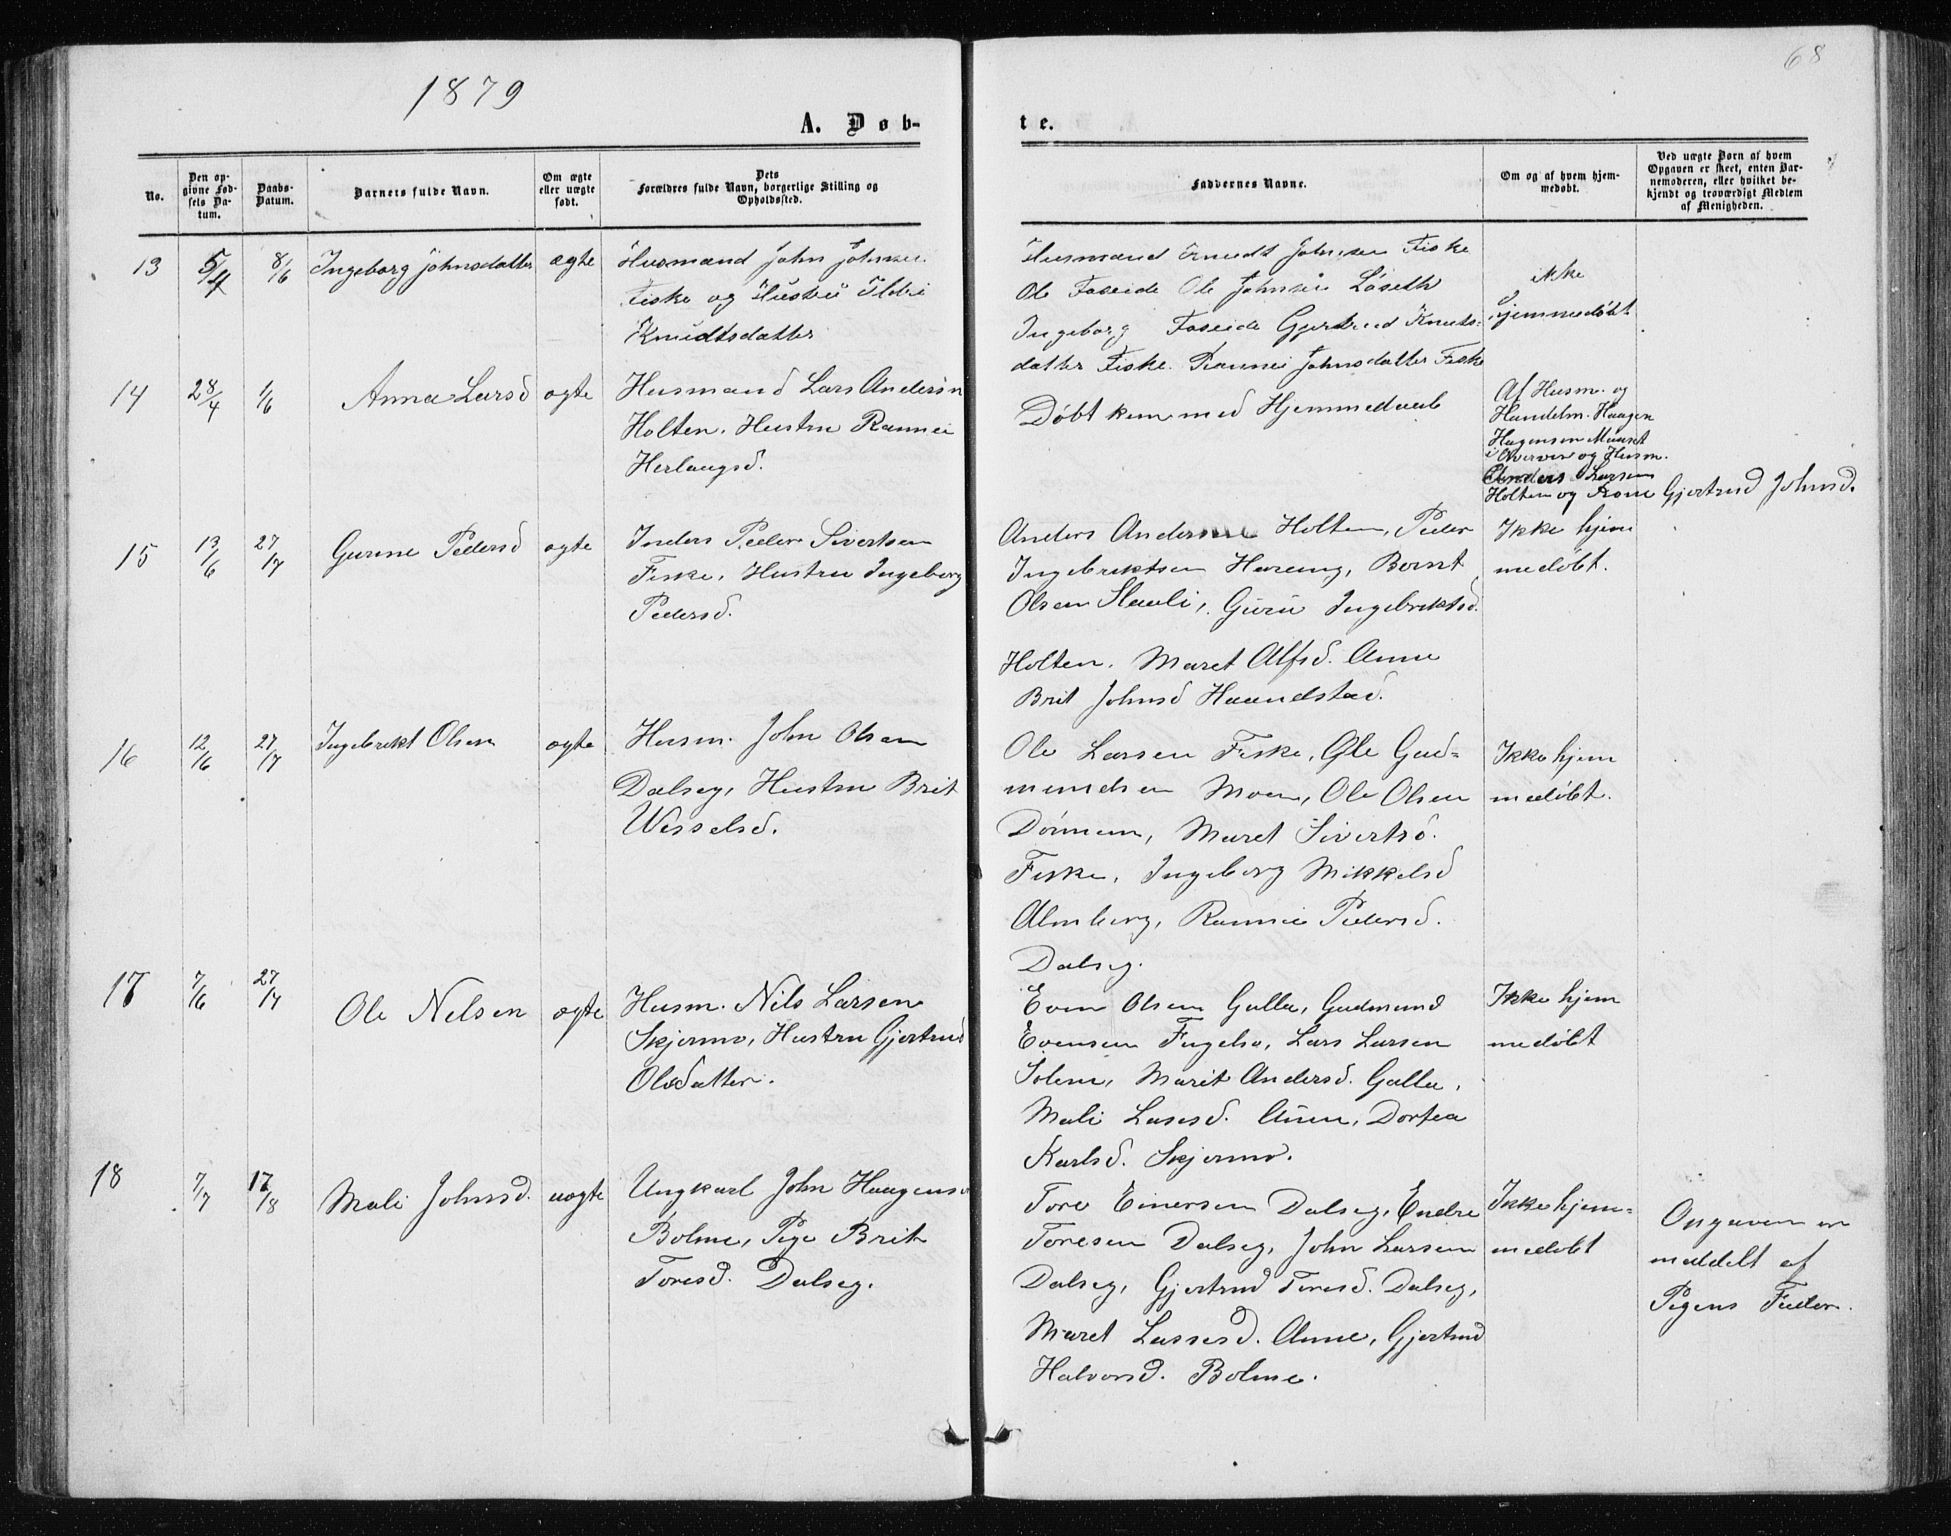 68
1879
A. Døb-
te.
No.
Den opgivne Fødsels Datum.
Daabs-Datum.
Barnets fulde Navn.
Om ægte eller uægte født.
Dets Forældres fulde Navn, borgerlige Stilling og Opholdssted.
Faddernes Navne.
Om og af hvem hjemmedøbt.
Ved uægte Børn af hvem Opgaven er skeet, enten Barnemoderen, eller hvilket bekjendt og troværdigt Medlem af Menigheden.
13 5/4 8/6 Ingeborg Johnsdatter ægte
Husmand John Johnsen
Fiske og Hustru Ildri
Knudtsdatter
Husmand Knudt Johnsen Fiske
Ole Foseide Ole Johnsen Løseth
Ingeborg Foseide Gjertrud Knuts-
datter Fiske. Rannei Johnsdatter Fiske
ikke
hjemmedøbt
14 28/4 1/6 Anna Larsd ægte
Husmand Lars Andersen
Holten. Hustru Rannei
Herlaugsd.
Døbt kun med Hjemmedaab
Af Husm. og
Handelm. Haagen
Hagensen
i og Husm.
Anders Larsen
Holten og Kone Gjertrud Johnsd.
15 13/6 27/7 Gurine Pedersd ægte
Inders Peder Sivertsen
Fiske, Hustru Ingeborg
Pedersd.
Anders Andersen Holten, Peder
Ingebriktsen Haraug, Bernt
Olsen Slauli, Guru Ingebriktsd.
Holten. Maret Alfsd. Aune
Brit Johnsd Haandstad.
Ikke hjem
medøbt.
16 12/6 27/7 Ingebrikt Olsen ægte
Husm. John Olsen
Dalseg, Hustru Brit
Wesselsd.
Ole Larsen Fiske, Ole Gud-
mundsen Moen, Ole Olsen
Dørmem, Maret Sivertsd.
Fiske, Ingeborg Mikkelsd
Almberg, Rannei Pedersd.
Dalseg.
Ikke hjem
medøbt.
17 7/6 27/7 Ole Nelsen ægte
Husm. Nils Larsen
Skjermo, Hustru Gjertrud
Olsdatter.
Even Olsen Galla, Gudmund
Evensen Fugelso, Lars Larsen
Solem, Marit Andersd. Galla,
Mali Lasesd. Aune, Dortea
Karlsd. Skjermo.
Ikke hjem
medøbt
18 7/7 17/8 Mali Johnsd. uægte
Ungkarl John Haagens.
Bolme, Pige Brit
Toresd. Dalseg.
Tore Einersen Dalseg, Endre
Toresen Dalseg, John Larsen
Dalseg, Gjertrud Toresd. Dalseg,
Maret Lassesd. Aune, Gjertrud
Halvorsd. Bolme.
Ikke hjem-
medøbt
Opgaven er
meddelt af
Pigens Fader.